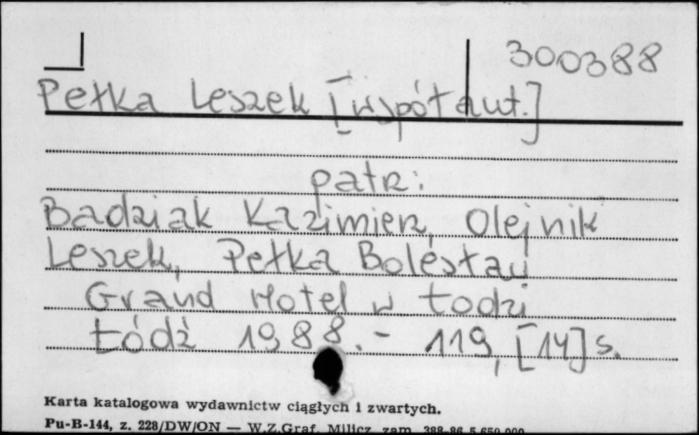 300388
Pełka Leszek [współaut.]
patrz:
Badziak Kazimierz, Olejnik
Leszek, Pełka Bolesław
Grand Hotel w Łodzi
Łódź 1988. - 119, [14] s.
Karta katalogowa wydawnictw ciągłych i zwartych.
Pu-B-144, z. 228/DW/ON — W.Z.Graf. Milicz, zam. 388-86 5.650.000